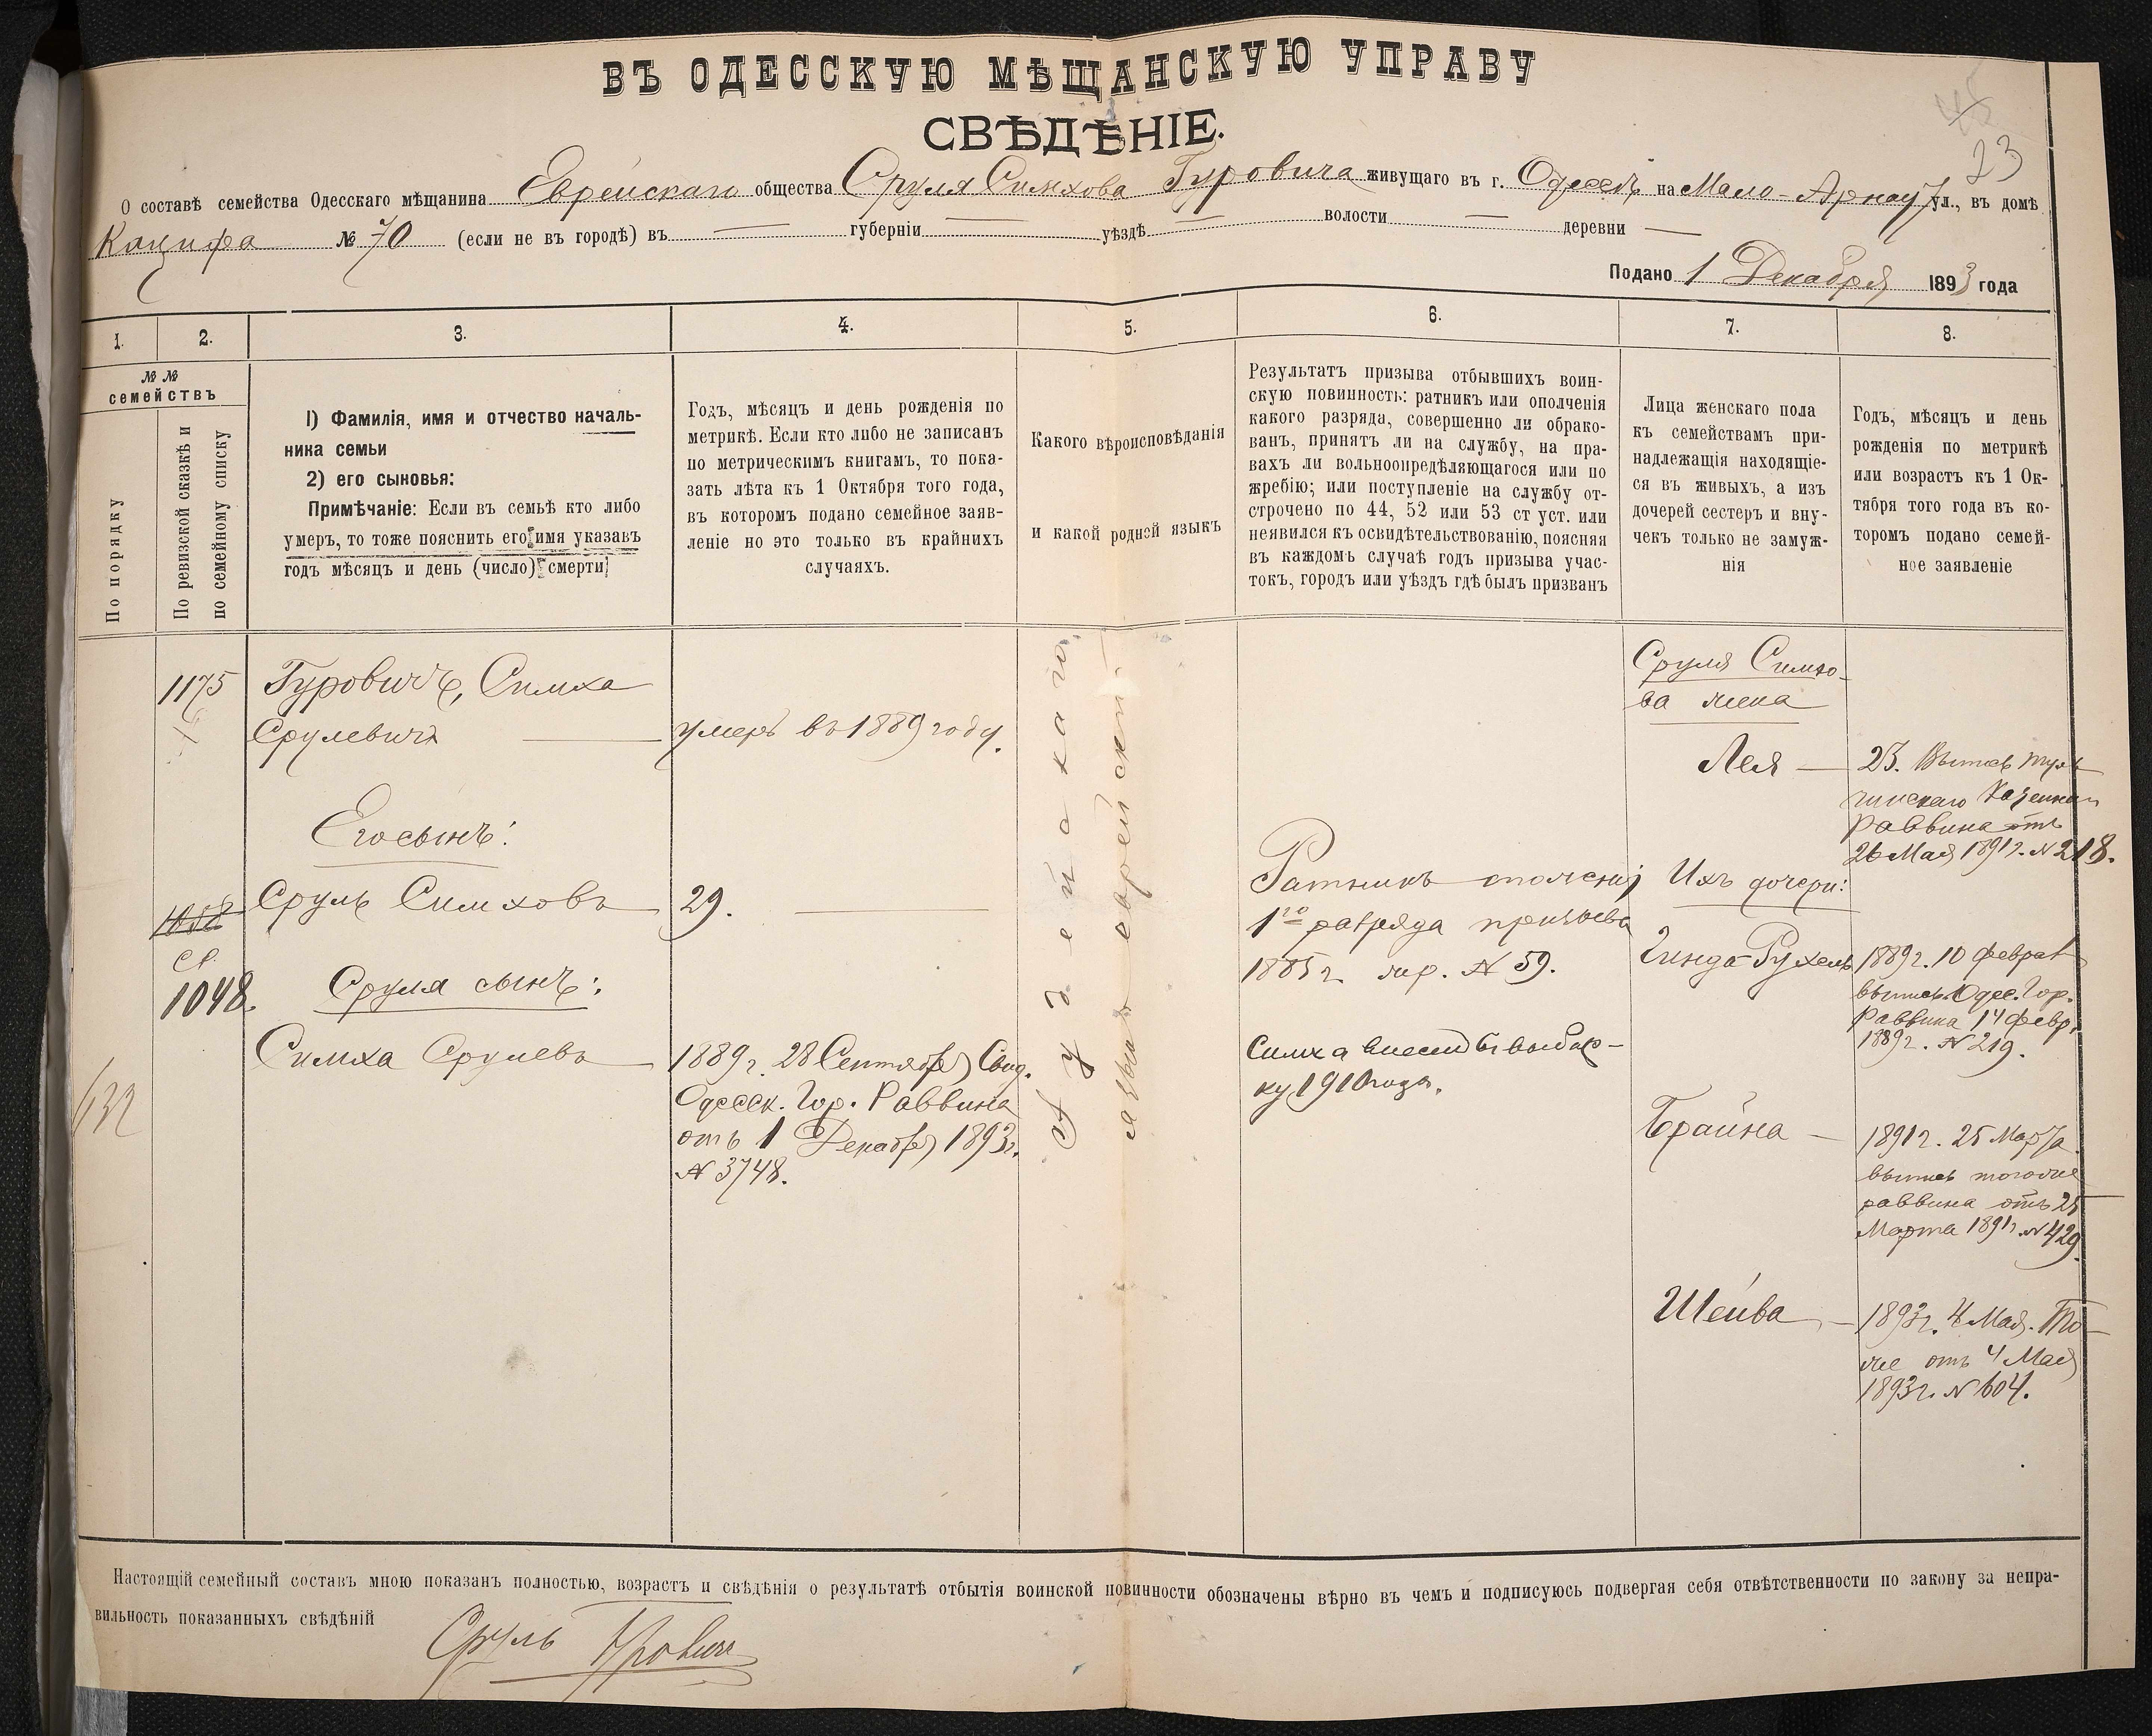 ВЪ ОДЕССКУЮ МѢЩАНСКУЮ УПРАВУ
СВѢДѢНІЕ.
23
О составѣ семейства Одесскаго мѣщанина Еврейскаго общества Сруля Симхова Гуровича живущаго въ г. Одессѣ на Мало-Арнаут ул., въ домѣ
№ 70 (если не въ городѣ) въ — губерніи — уѣздѣ — волости — деревни —
Подано 1 Декабря 1893 года
1. 2. 3. 4. 5. 6. 7. 8.
№ №
семействъ
По порядку
По ревизской сказкѣ и
по семейному списку
1) Фамилія, имя и отчество началь-
ника семьи
2) его сыновья:
Примѣчаніе: Если въ семьѣ кто либо
умеръ, то тоже пояснить его имя указавъ
годъ мѣсяцъ и день (число) смерти
Годъ, мѣсяцъ и день рожденія по
метрикѣ. Если кто либо не записанъ
по метрическимъ книгамъ, то пока-
зать лѣта къ 1 Октября того года,
въ которомъ подано семейное заяв-
леніе но это только въ крайнихъ
случаяхъ.
Какого вѣроисповѣданія
и какой родной языкъ
Результатъ призыва отбывшихъ воин-
скую повинность: ратникъ или ополченія
какого разряда, совершенно ли обрако-
ванъ, принятъ ли на службу, на пра-
вахъ ли вольноопредѣляющагося или по
жребію; или поступленіе на службу от-
строчено по 44, 52 или 53 ст уст. или
неявился къ освидѣтельствованію, поясняя
въ каждомъ случаѣ годъ призыва учас-
токъ, городъ или уѣздъ гдѣ былъ призванъ
Лица женскаго пола
къ семействамъ при-
надлежащія находящіе-
ся въ живыхъ, а изъ
дочерей сестеръ и вну-
чекъ только не замуж-
нія
Годъ, мѣсяцъ и день
рожденія по метрикѣ
или возрастъ къ 1 Ок-
тября того года въ ко-
торомъ подано семей-
ное заявленіе
1175 Гуровичъ, Симха
Срулевичъ — умеръ въ 1889 году.
Его сынъ:
Сруль Симховъ — 29. —
1048.
Сруля сынъ:
Симха Срулевъ — 1889 г. 28 Сентября Свид.
Одесск. Гор. Раввина
отъ 1 Декабря 1893 г.
№ 3748.
632
Іудейскаго,
языкъ еврейскій
Ратникъ ополченія
1го разряда призыва
1885 г. жр. № 59.
Симха внесенъ въ выбор-
ку 1910 года.
Сруля Симхо-
ва жена
Лея —
Ихъ дочери:
Гинда-Рухель
Брайна —
Шейва —
25. Выпись
Казеннаго
Раввина отъ
26 Мая 1891 г. № 218.
1889 г. 10 феврал
выпись Одес. Гор.
Раввина 14 февр.
1889 г. № 219.
1891 г. 25 Марта
выпись тогоже
раввина отъ 25
Марта 1891 г. № 429.
1893 г. 4 Мая. То-
же отъ 4 Мая
1893 г. № 604.
Настоящій семейный составъ мною показанъ полностью, возрастъ и свѣдѣнія о результатѣ отбытія воинской повинности обозначены вѣрно въ чемъ и подписуюсь подвергая себя отвѣтственности по закону за непра-
вильность показанныхъ свѣдѣній
Сруль Гуровичъ